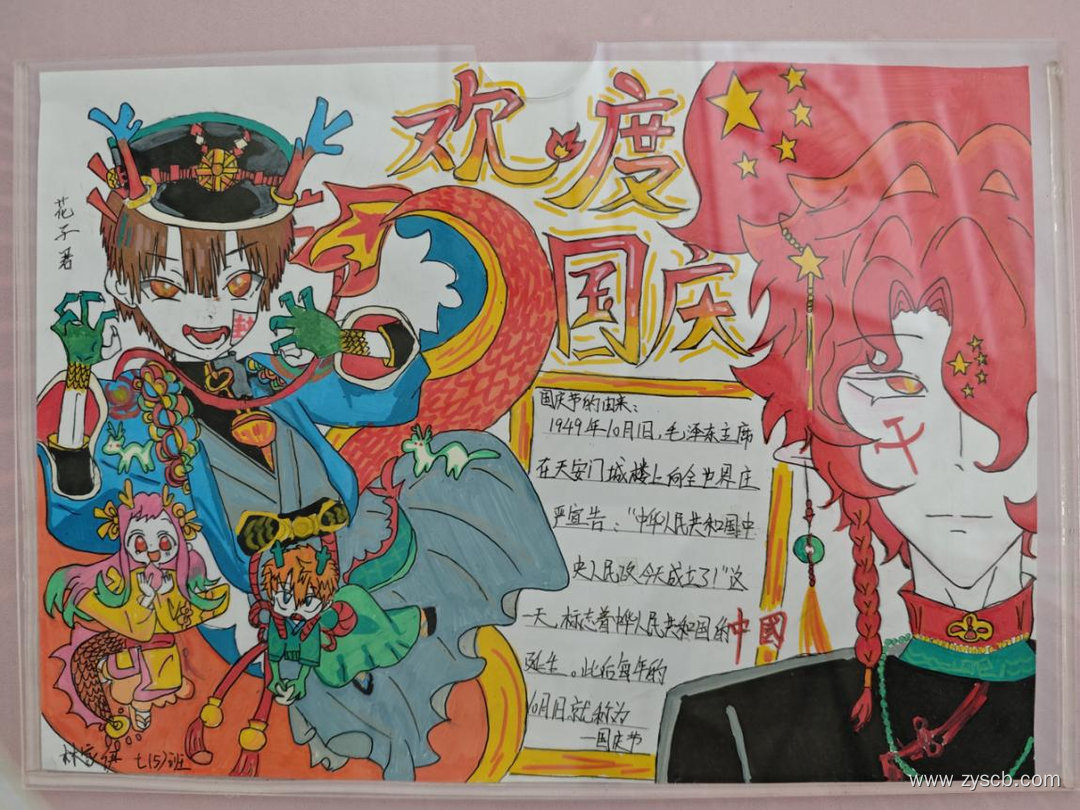 欢度
国庆
花子君
封
国庆节的由来:
1949年10月1日,毛泽东主席
在天安门城楼上向全世界庄
严宣告:“中华人民共和国中
央人民政今天成立了!”这
一天,标志着中华人民共和国的
诞生。此后每年的
10月1日就称为
国庆节
中國
七(5)班
www.zyscb.com